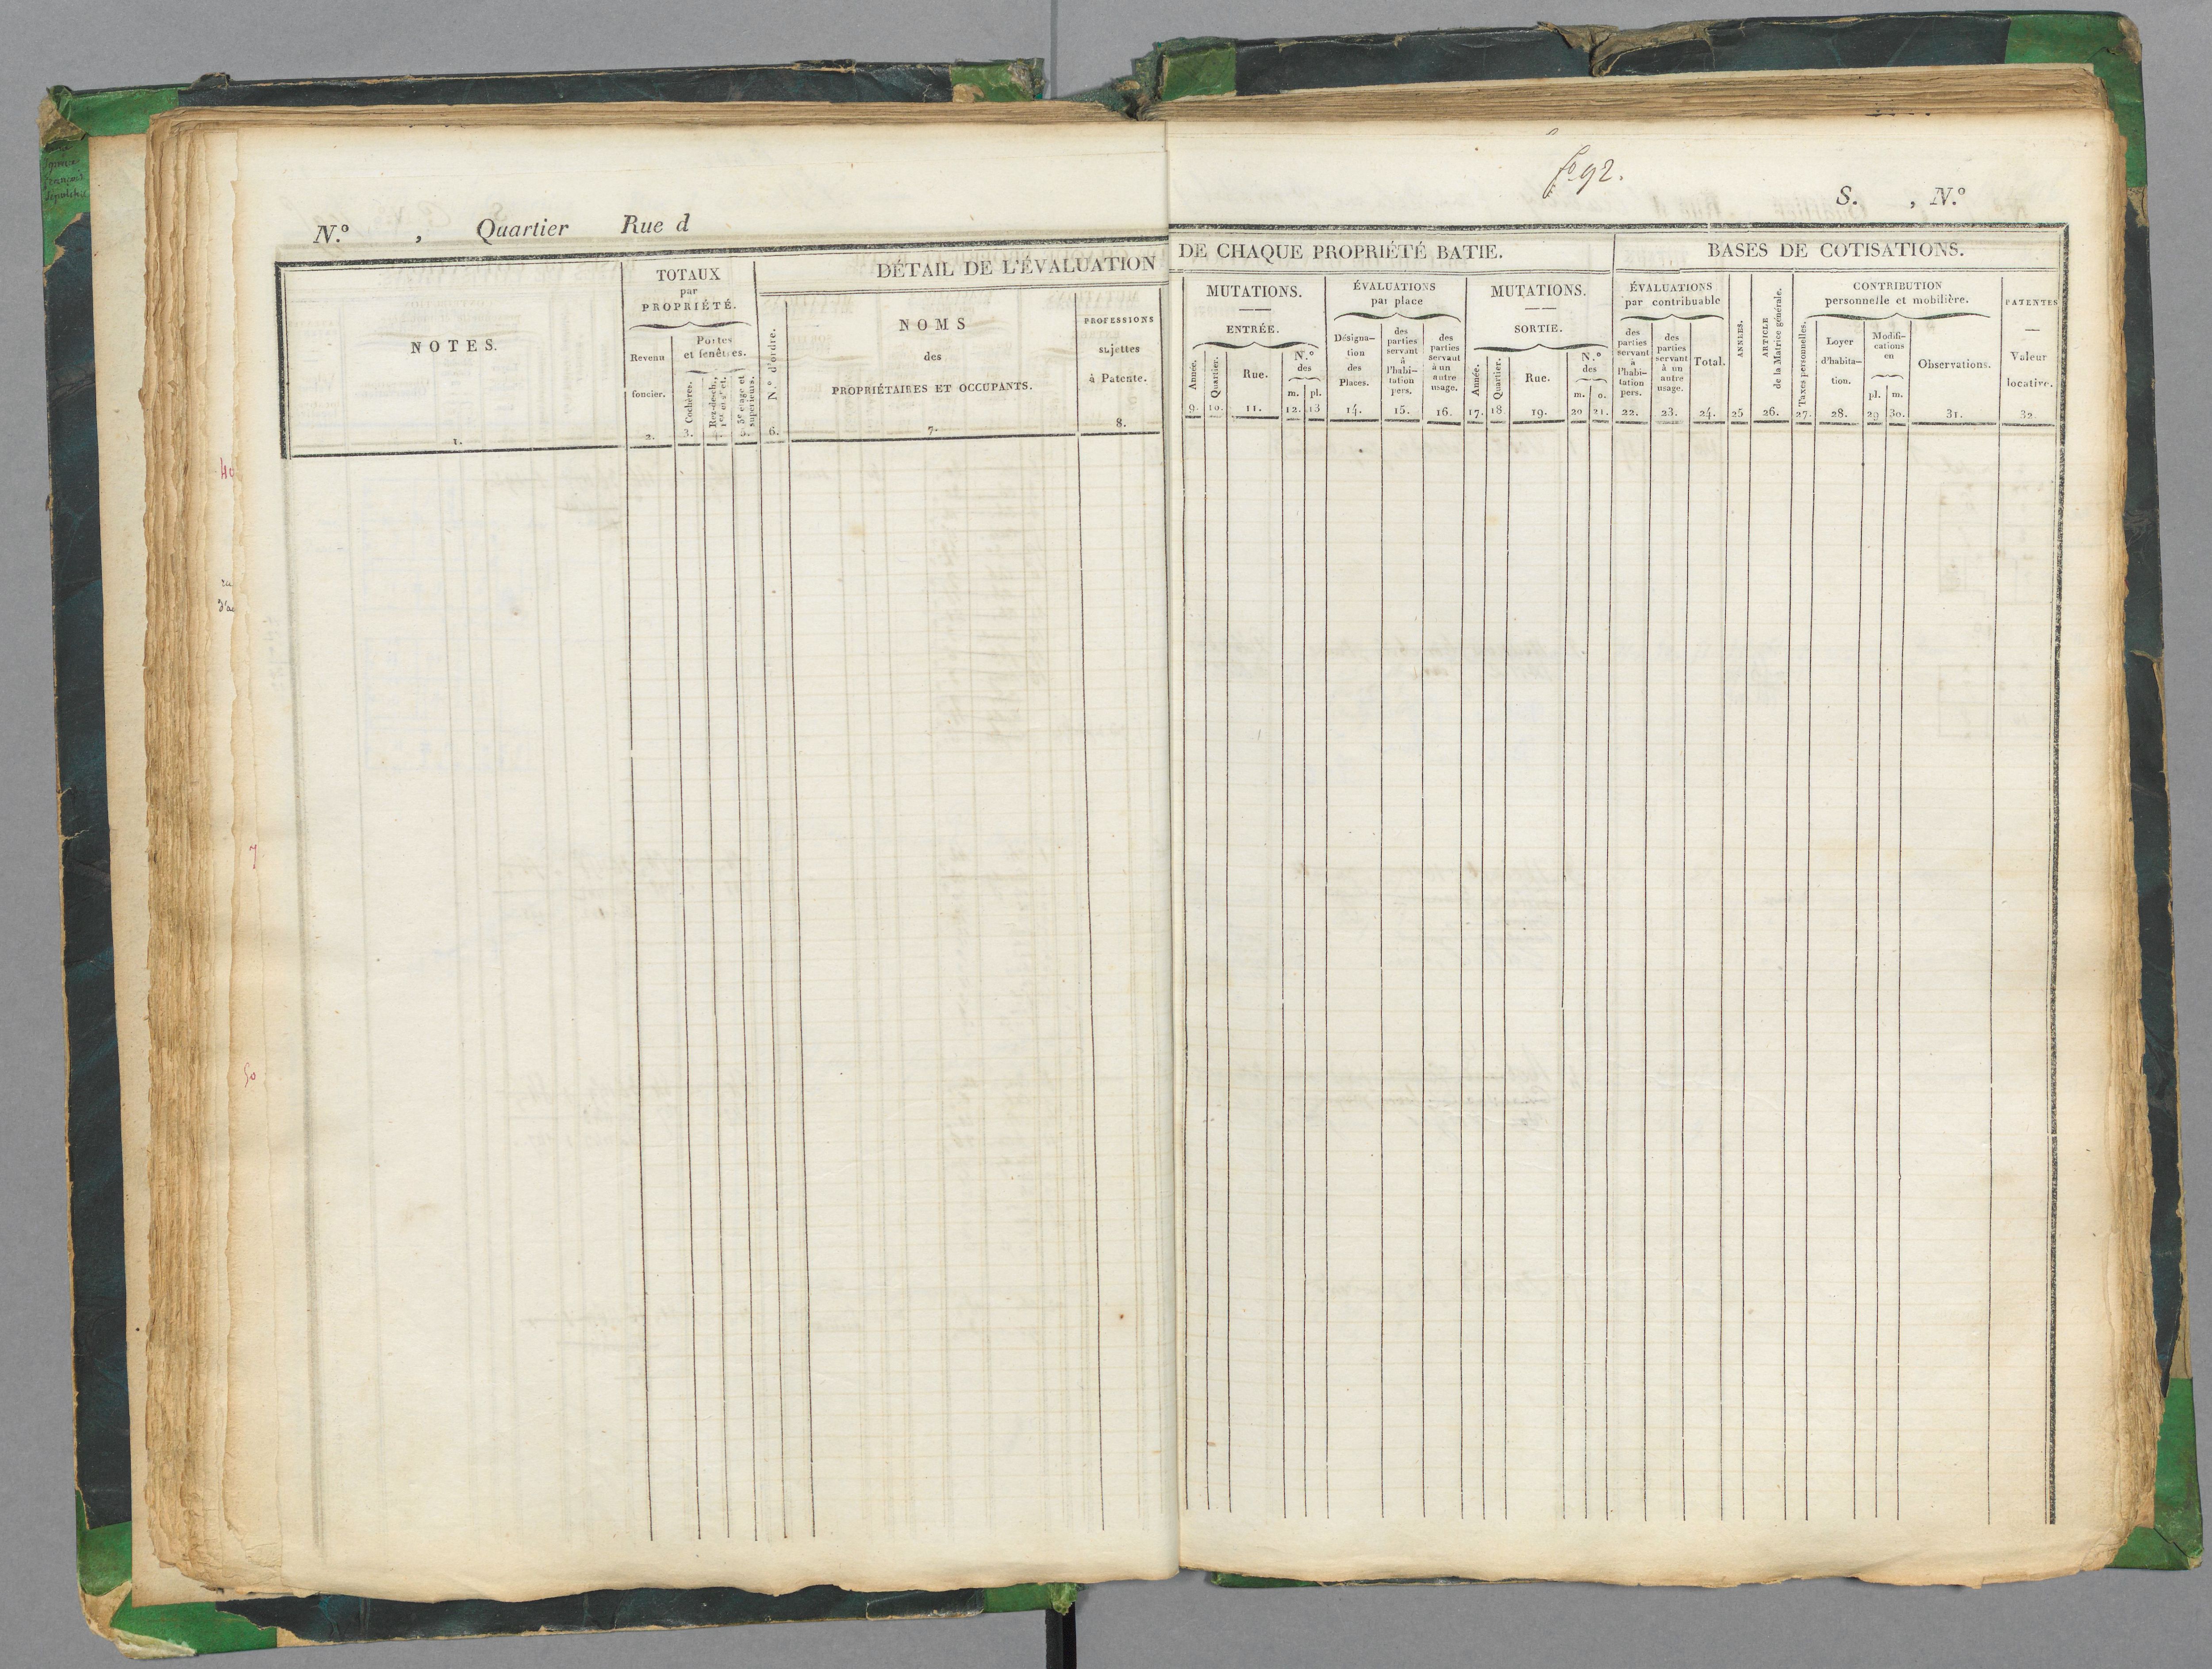 f.º 92.
N.º , Quartier Rue d
S. , N.º
DÉTAIL DE L'ÉVALUATION DE CHAQUE PROPRIÉTÉ BATIE.
BASES DE COTISATIONS.
NOTES.
1.
TOTAUX
par
PROPRIÉTÉ.
Revenu
foncier.
2.
Portes
et fenêtres.
3. Cochères.
Rez-de-ch.,
1er et 2e ét.
3e étage et
supérieurs.
N.º d'ordre.
6.
NOMS
des
PROPRIÉTAIRES ET OCCUPANTS.
7.
PROFESSIONS
sujettes
à Patente.
8.
MUTATIONS.
ENTRÉE.
Année.
9.
Quartier.
10.
Rue.
11.
N.º
des
m. pl.
12. 13
ÉVALUATIONS
par place
Désigna-
tion
des
Places.
14.
des
parties
servant
à
l'habi-
tation
pers.
15.
des
parties
servant
à un
autre
usage.
16.
MUTATIONS.
SORTIE.
Année.
17.
Quartier.
18
Rue.
19.
N.º
des
m. o.
20 21.
ÉVALUATIONS
par contribuable
des
parties
servant
à
l'habi-
tation
pers.
22.
des
parties
servant
à un
autre
usage.
23.
Total.
24.
ANNÉES.
25
ARTICLE
de la Matrice générale.
26.
CONTRIBUTION
personnelle et mobilière.
Taxes personnelles.
27.
Loyer
d'habita-
tion.
28.
Modifi-
cations
en
pl. m.
29 30.
Observations.
31.
PATENTES
Valeur
locative.
32.
40
7
50